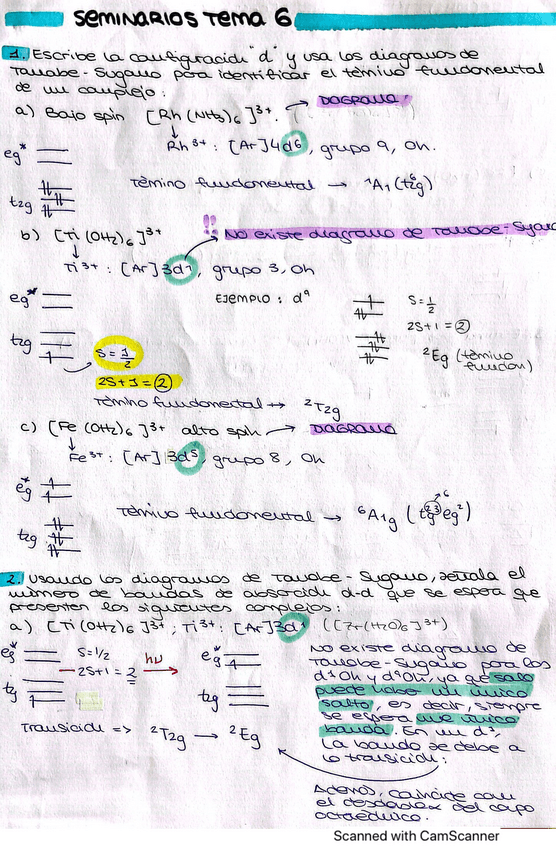 SEMINARIOS TEMA 6
1. Escribe la configuración "d" y usa los diagramas de
Tanabe-Sugano para identificar el término fundamental
de un complejo:
a) Bajo spin [Rh(NH3)6]3+. → DIAGRAMA
Rh3+: [Ar]4d6, grupo 9, Oh.
eg*
t2g
Término fundamental → 1A1(t2g6)
b) [Ti(OH2)6]3+
!! No existe diagrama de Tanabe-Suga
Ti3+: [Ar]3d1, grupo 3, Oh
eg*
EJEMPLO: d9
S=1/2
2S+1=2
2Eg (término
t2g
S=1/2
2S+1=2
Término fundamental → 2T2g
c) [Fe(OH2)6]3+ alto spin → DIAGRAMA
Fe3+: [Ar]3d5, grupo 8, Oh
eg*
t2g
Término fundamental → 6A1g (t2g3eg2)
6
2. Usando los diagramas de Tanabe-Sugano, señala el
número de bandas de absorción d-d que se espera que
presenten los siguientes complejos:
a) [Ti(OH2)6]3+; Ti3+: [Ar]3d1 ([Zr(H2O)6]3+)
eg*
S=1/2
2S+1=2
hν
eg*
t2g
t2g
Transición => 2T2g → 2Eg
No existe diagrama de
Tanabe-Sugano para los
d1Oh y d9Oh, ya que solo
puede haber un único
salto, es decir, siempre
se espera una única
banda. En un d1,
la banda se debe a
la transición:
Además, coincide con
el desdoblax del campo
octaédrico.
Scanned with CamScanner